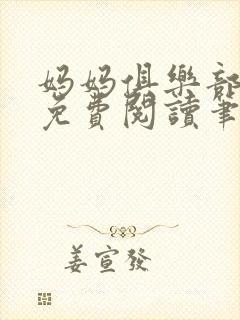 媽媽俱樂部
免費閱讀筆
姜宣發